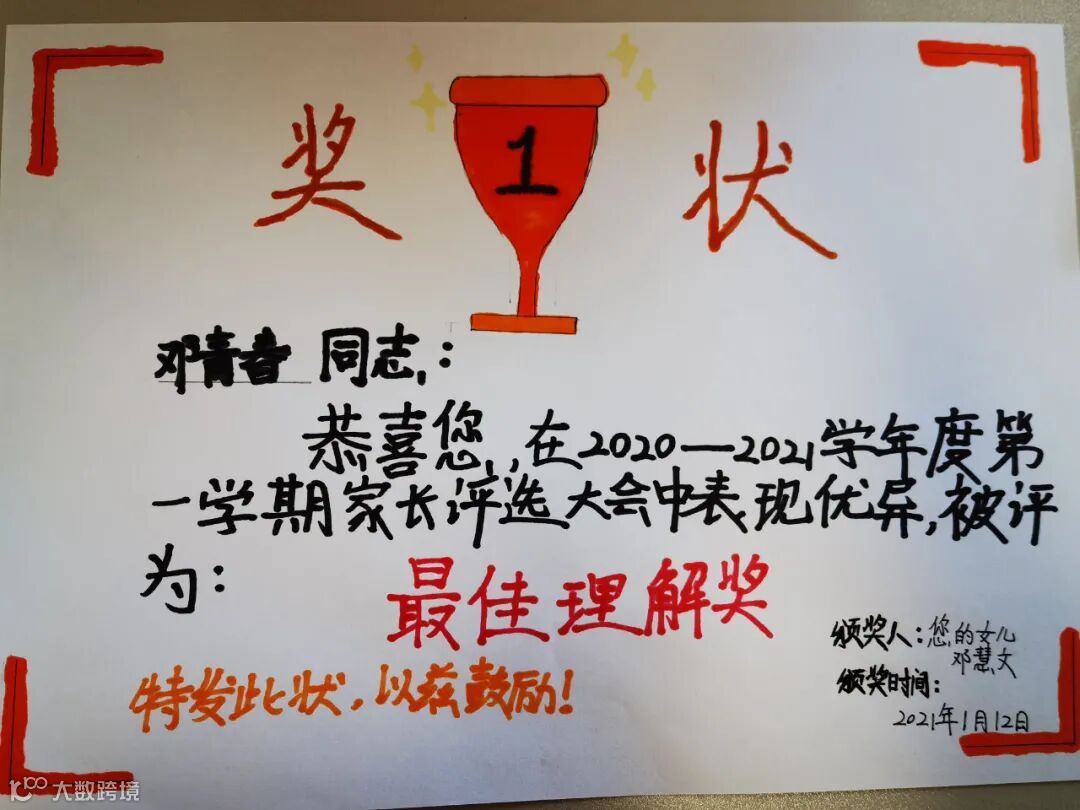 奖 1 状
邓青春 同志:
恭喜您,在2020—2021学年度第
一学期家长评选大会中表现优异,被评
为:
最佳理解奖
特发此状,以兹鼓励!
颁奖人:您的女儿
邓慧文
颁奖时间:
2021年1月12日
大数跨境